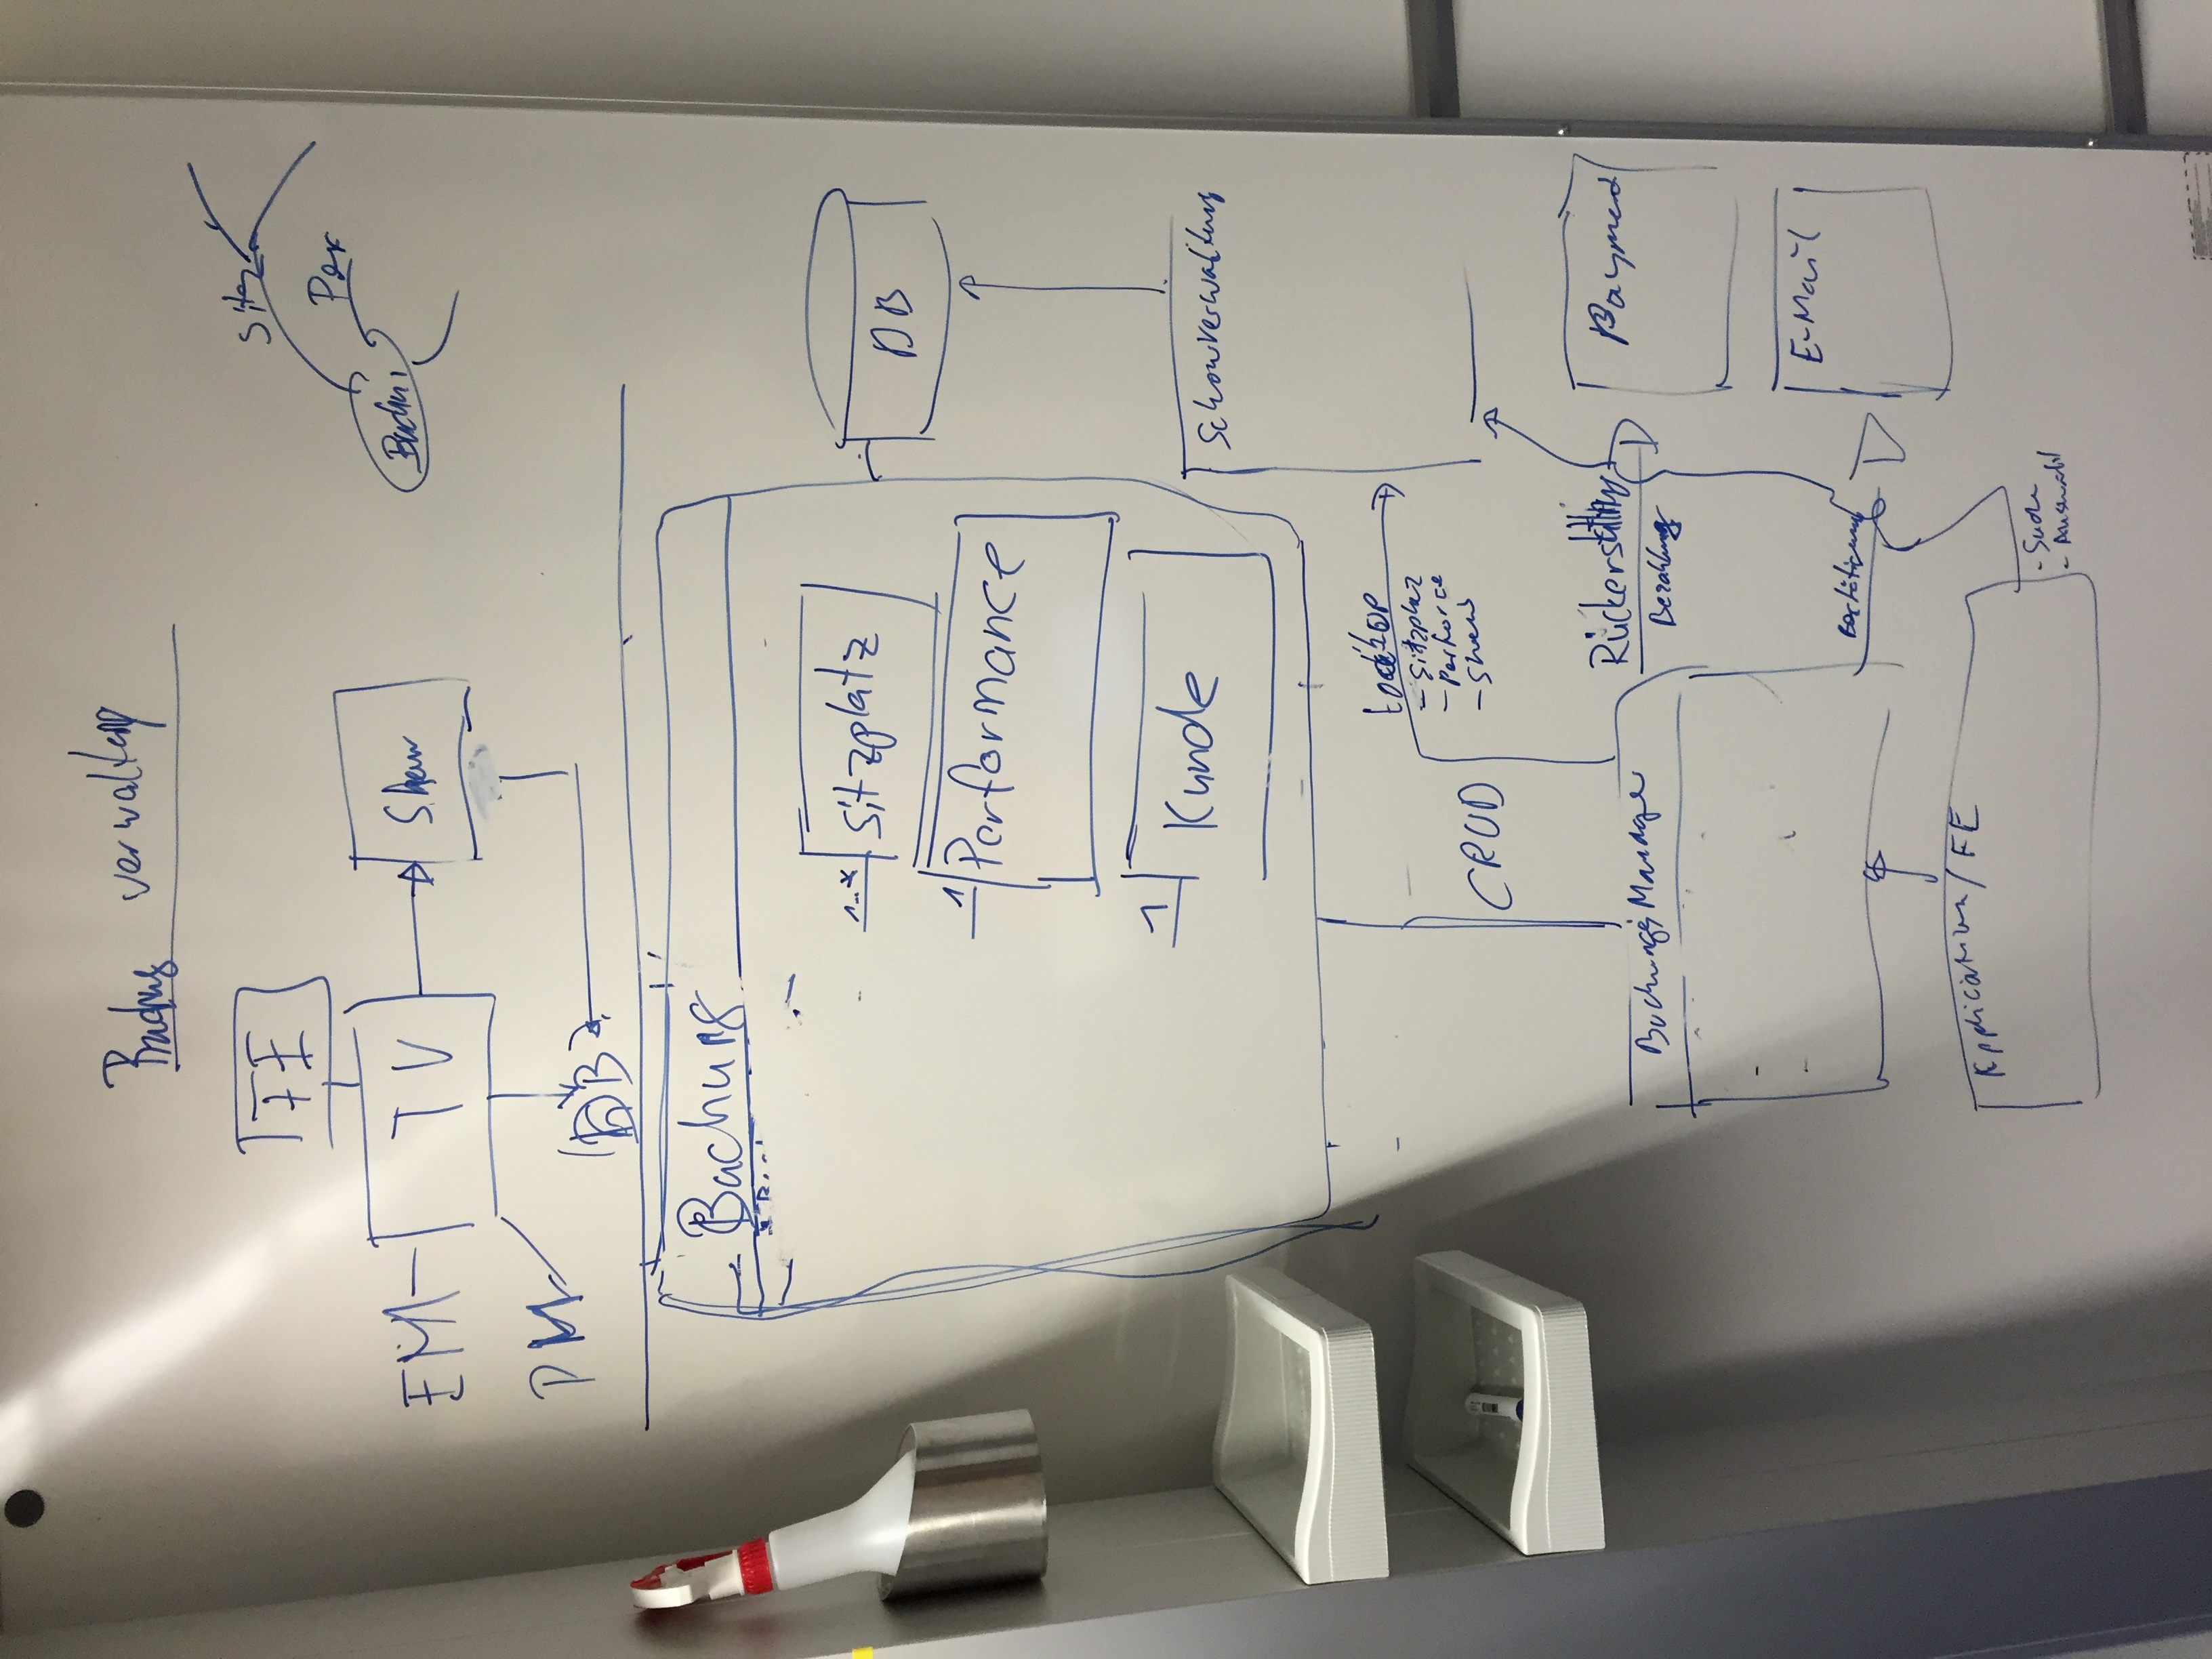 Buchung verwaltung
FE
EM
TV
Show
PM
DB
Sitz
Per
Buchung
1..*
Sitzplatz
DB
1
Performance
1
Kunde
Schowverwaltung
- Sitzplaz
- Perforce
- Show
CRUD
Rückerstattung
Bezahlung
Payment
Buchungs Manager
E-Mail
Bestätigung
Application / FE
- Suche
- Auswahl